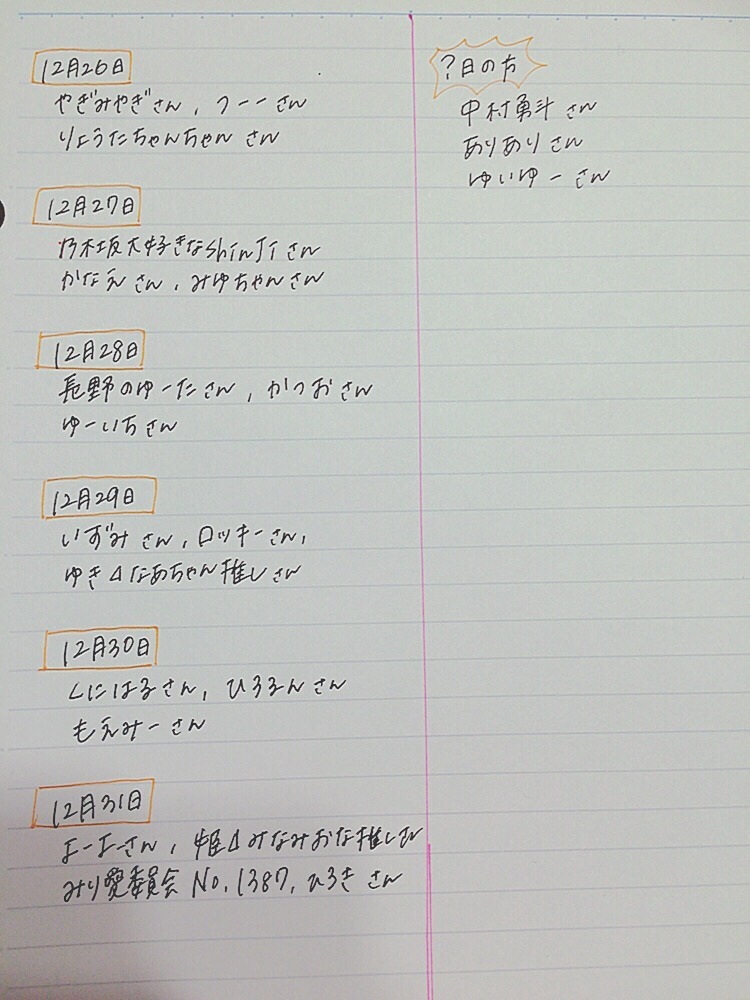 12月26日
やぎみやぎさん, つーーさん
りょうたちゃんちゃん さん
12月27日
乃木坂大好きなShinJiさん
かなえさん, みゆちゃんさん
12月28日
長野のゆーたさん, かつおさん
ゆーいちさん
12月29日
いずみさん, ロッキーさん,
ゆき⊿なあちゃん推しさん
12月30日
くにはるさん, ひろるんさん
もえみーさん
12月31日
よーよさん, 姫⊿みなみおな推しさん
みり愛委員会 No.1387, ひろきさん
?日の方
中村勇斗さん
ありありさん
ゆいゆーさん